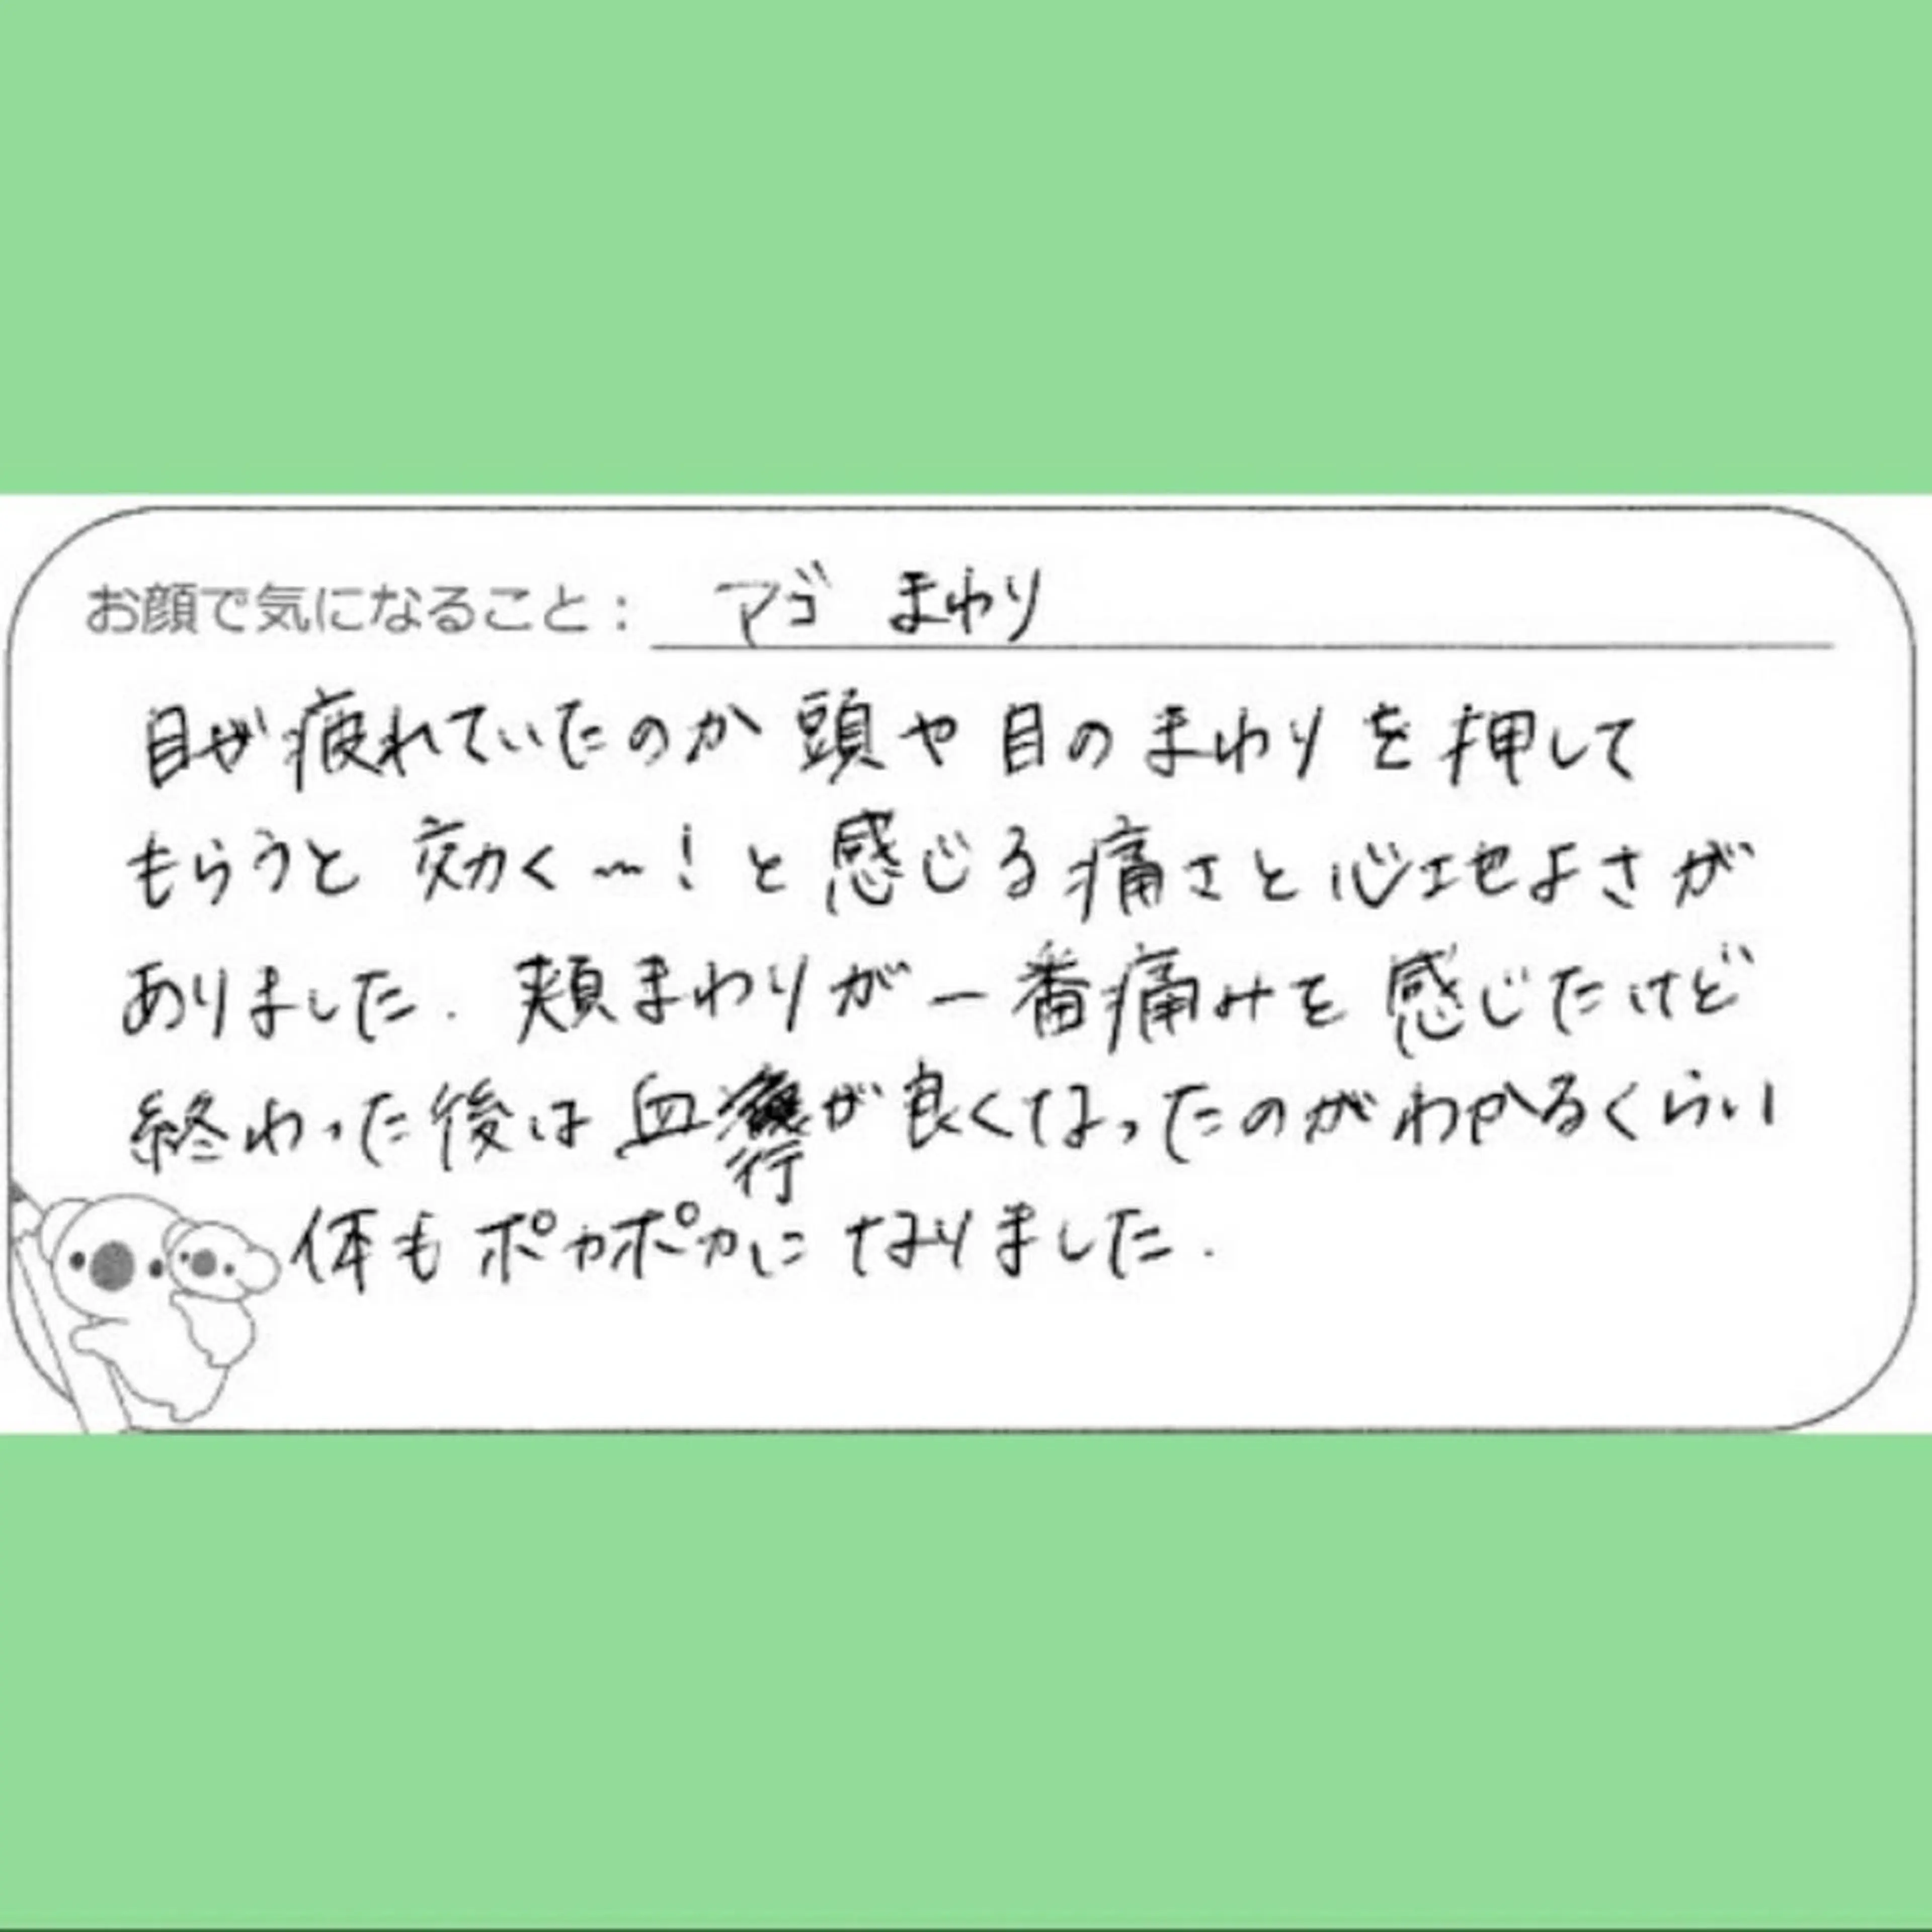 お顔で気になること： アゴ まわり
目が疲れていたのか 頭や目のまわりを押して
もらうと 効く〜！と感じる痛さと心地よさが
ありました. 頬まわりが一番痛みを感じたけど
終わった後は血行が良くなったのがわかるくらい
体もポカポカに なりました.